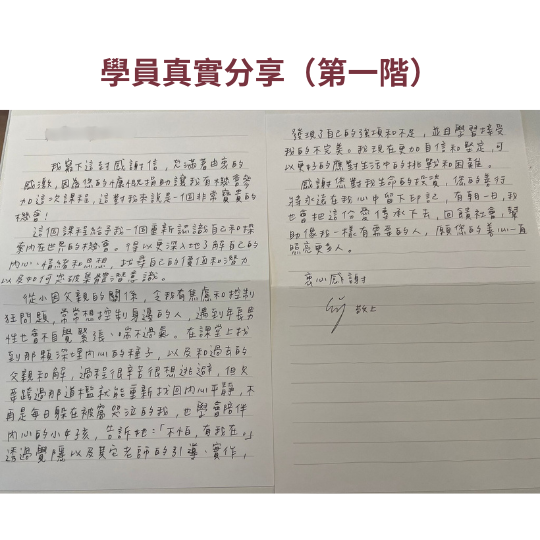 學員真實分享（第一階）
我寫下這封感謝信，充滿著由衷的
感激，因為您的慷慨捐助讓我有機會參
加這次課程，這對我來說是一個非常寶貴的
機會！
這個課程給予我一個重新認識自己和探
索內在世界的機會。得以更深入地了解自己的
內心、情緒和思想，找尋自己的價值和潛力
以及如何您被集體潛意識。
從小因父親的關係，令我有焦慮和控制
狂問題，常常想控制身邊的人，遇到年長男
性也會不自覺緊張、喘不過氣。在課堂上找
到那顆深埋內心的種子，以及和過去的
父親和解，過程很辛苦很想逃避，但只
要跨過那道檻就能重新找回內心平靜，不
再是每日躲在被窩哭泣的我，也學會陪伴
內心的小女孩，告訴她：「不怕，有我在。」
透過覺隱以及其它老師的引導、實作，
發現了自己的強項和不足，並且學習接受
我的不完美。我現在更加自信和堅定，可
以更好的應對生活中的挑戰和困難。
感謝您對我生命的投資，您的善行
將永遠在我心中留下印記，有朝一日，我
也會把這份愛傳承下去，回饋社會，幫
助像我一樣有需要的人，願您的善心一直
照亮更多人。
衷心感謝
敬上